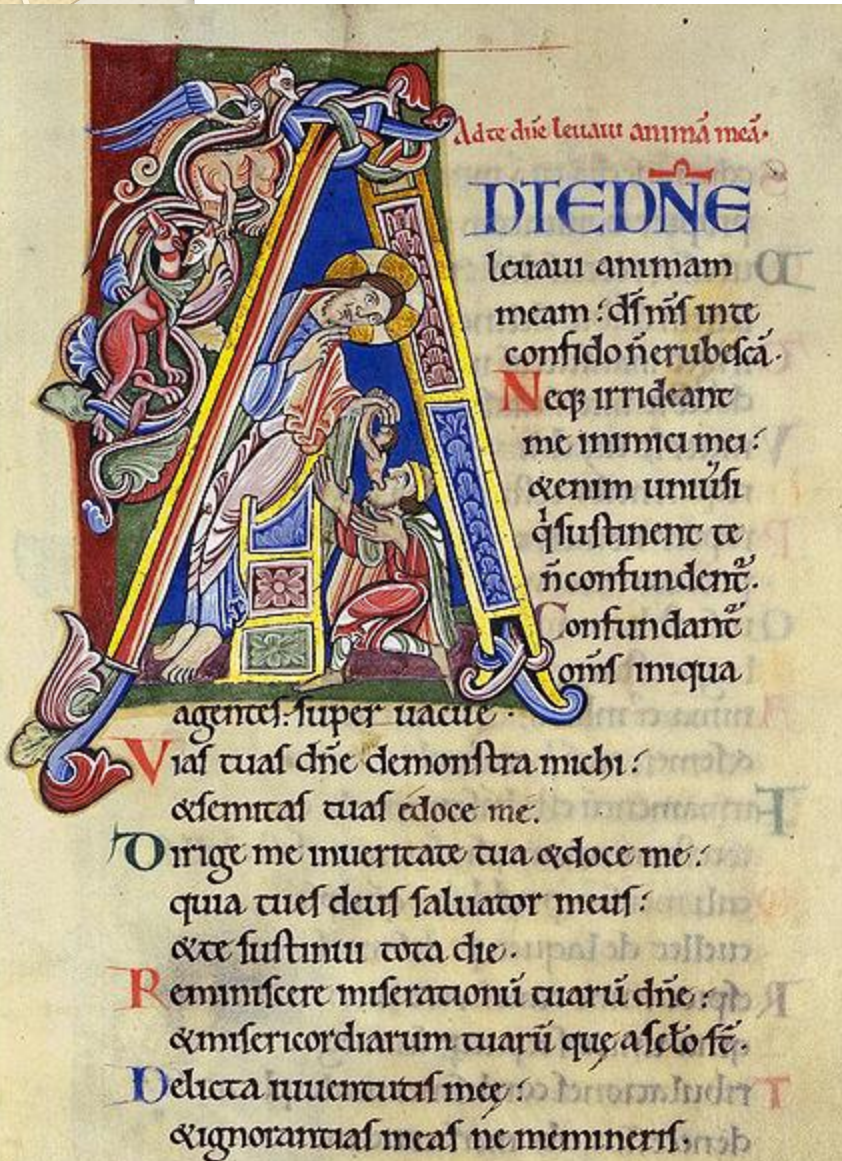 Ad te dñe leuaui animā meā.
D TE DN̄E
leuaui animam
meam: ds̄ ms̄ inte
confido n̄ erubescā.
Neq; irrideant
me inimici mei:
&enim uniūsi
qͥ sustinent te
n̄ confundent̄.
Confundant̄
om̄s iniqua
agentes: super uacue.
Vias tuas dñe demonstra michi:
&semitas tuas edoce me.
Dirige me inueritate tua &doce me:
quia tues deus saluator meus:
&te sustinui tota die.
Reminiscere miserationū tuarū dñe:
&misericordiarum tuarū quę aseło st̄.
Delicta iuuentutis meę:
&ignorantias meas ne memineris.